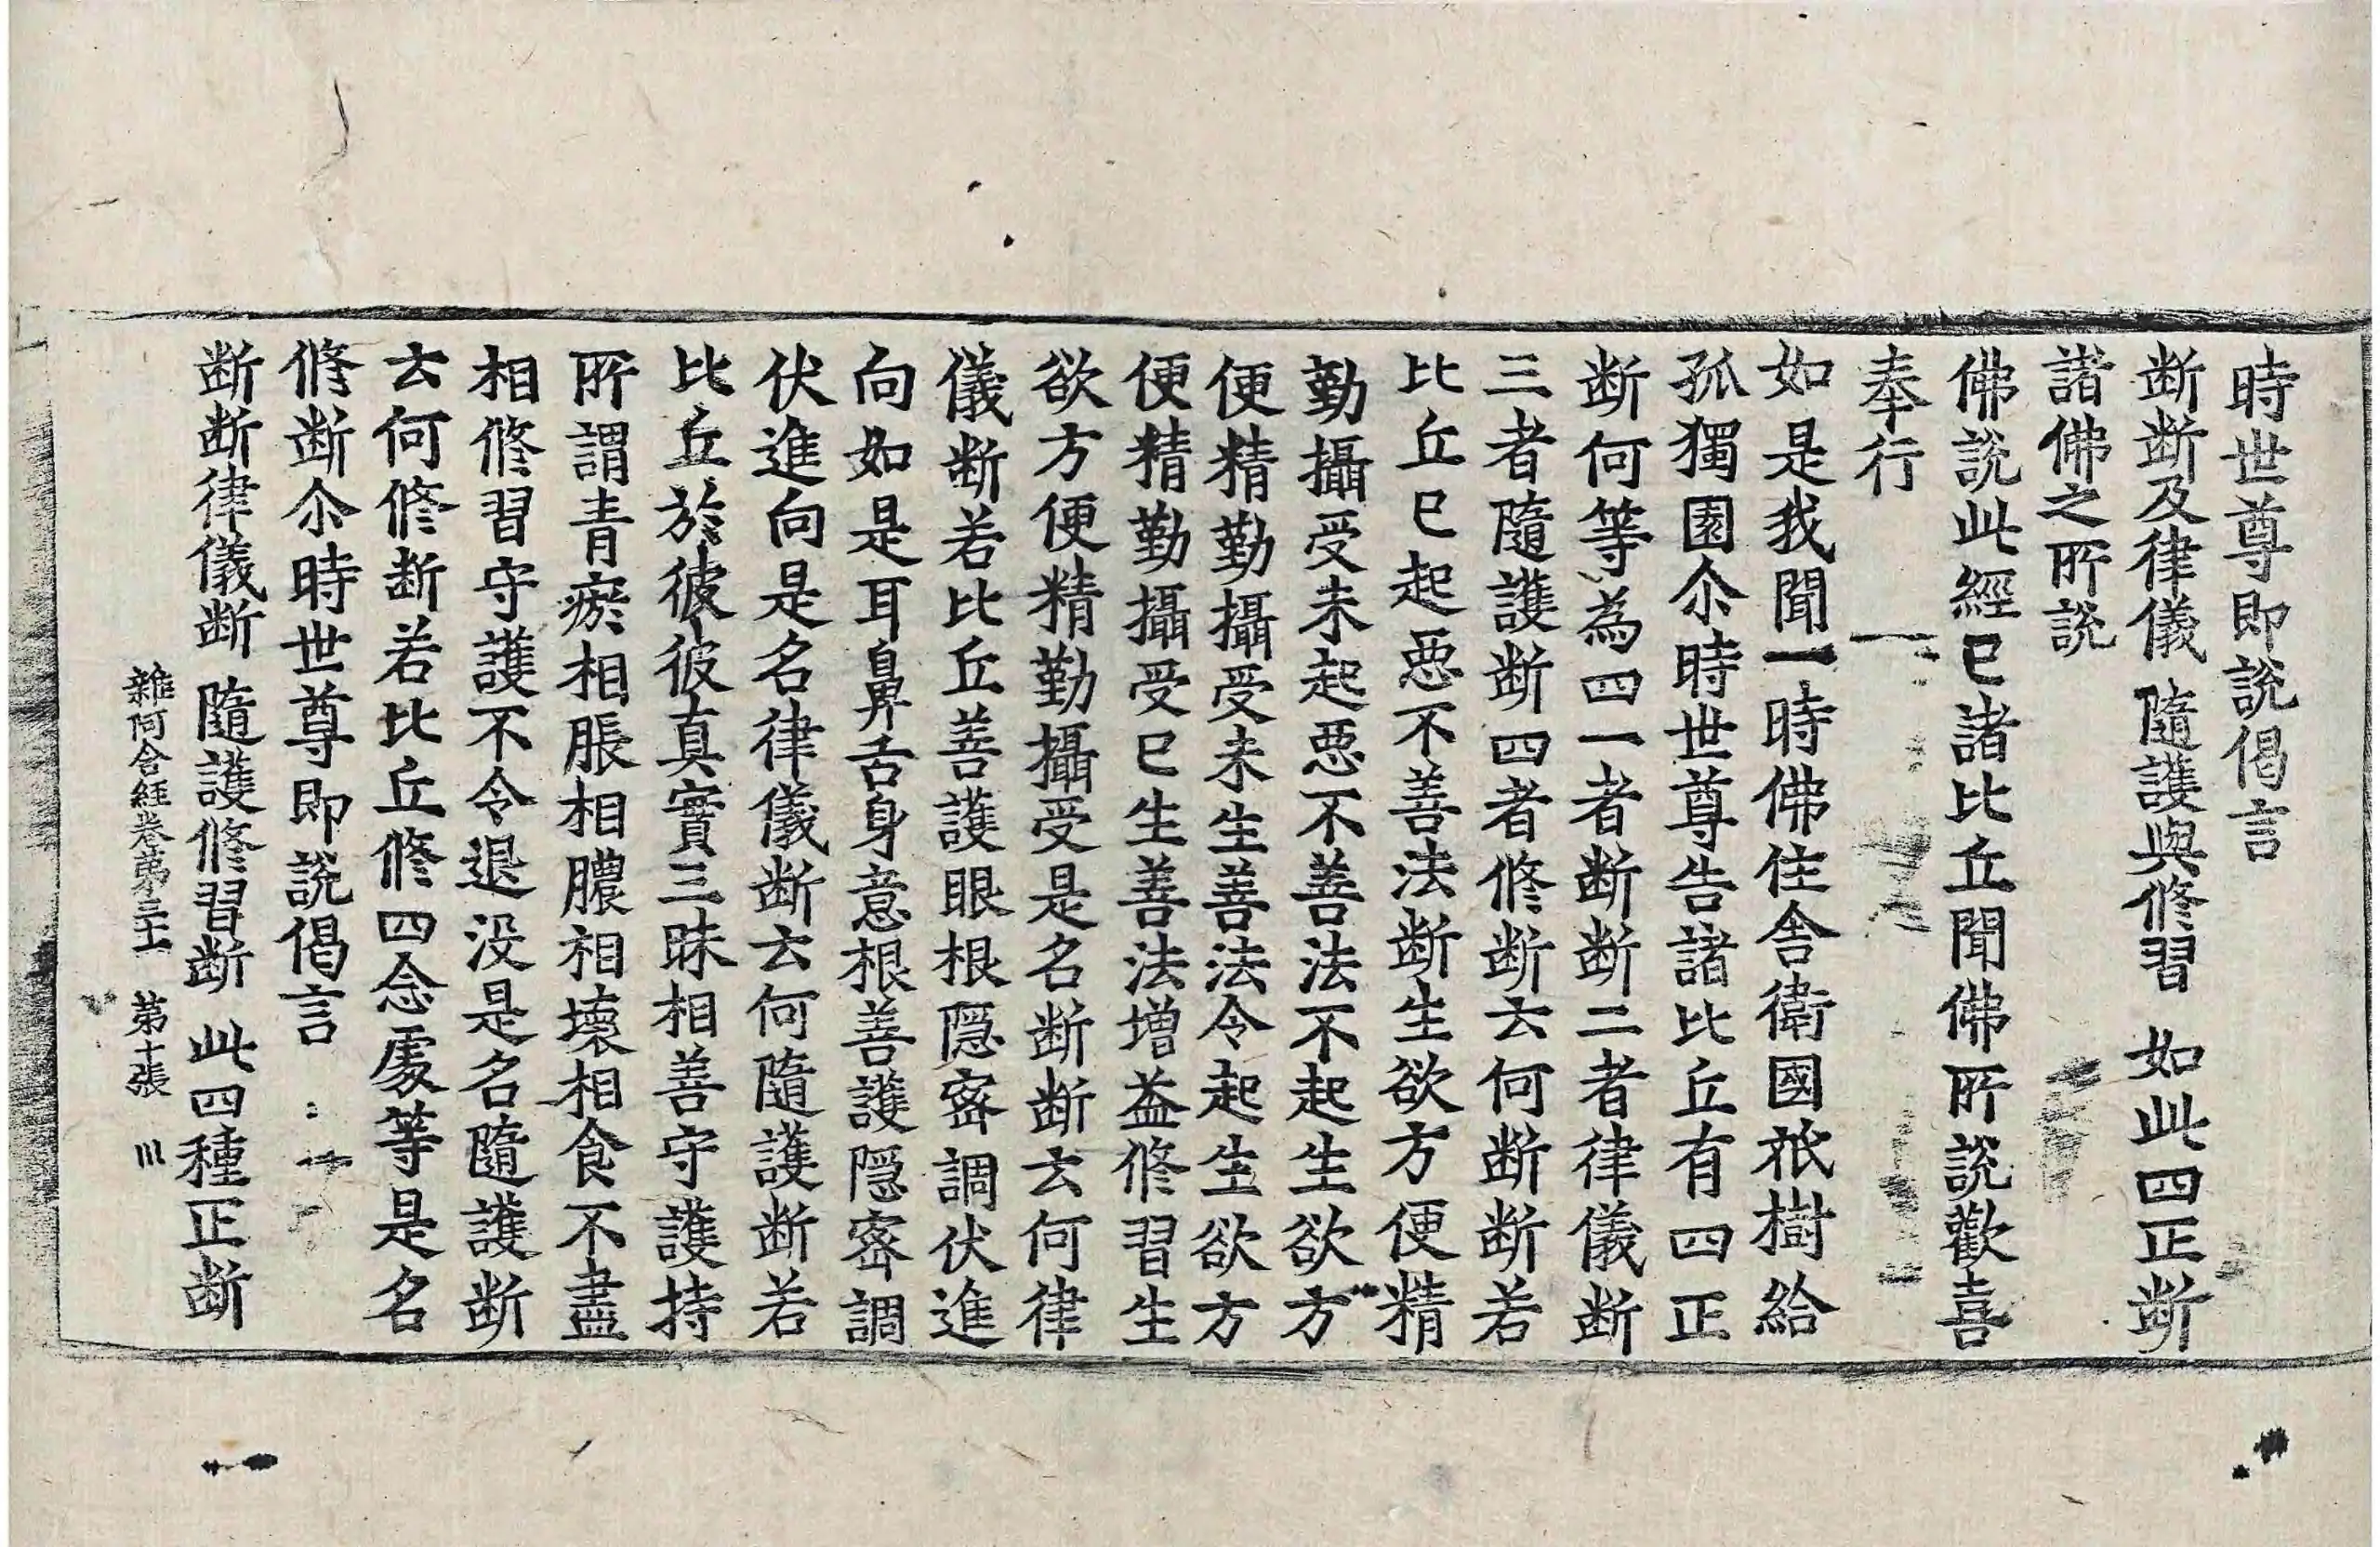 時世尊即說偈言
断断及律儀 隨護與修習 如此四正断
諸佛之所說
佛說此經已諸比丘聞佛所說歡喜
奉行
如是我聞一時佛住舍衛國祇樹給
孤獨園尒時世尊告諸比丘有四正
断何等為四一者断断二者律儀断
三者隨護断四者修断云何断断若
比丘已起惡不善法断生欲方便精
勤攝受未起惡不善法不起生欲方
便精勤攝受未生善法令起生欲方
便精勤攝受已生善法增益修習生
欲方便精勤攝受是名断断云何律
儀断若比丘善護眼根隱密調伏進
向如是耳鼻舌身意根善護隱密調
伏進向是名律儀断云何隨護断若
比丘於彼彼真實三昧相善守護持
所謂青瘀相脹相膿相壞相食不盡
相修習守護不令退没是名隨護断
云何修断若比丘修四念處等是名
修断尒時世尊即說偈言
断断律儀断 隨護修習断 此四種正断
雜阿含経卷第三十一 第十張 川